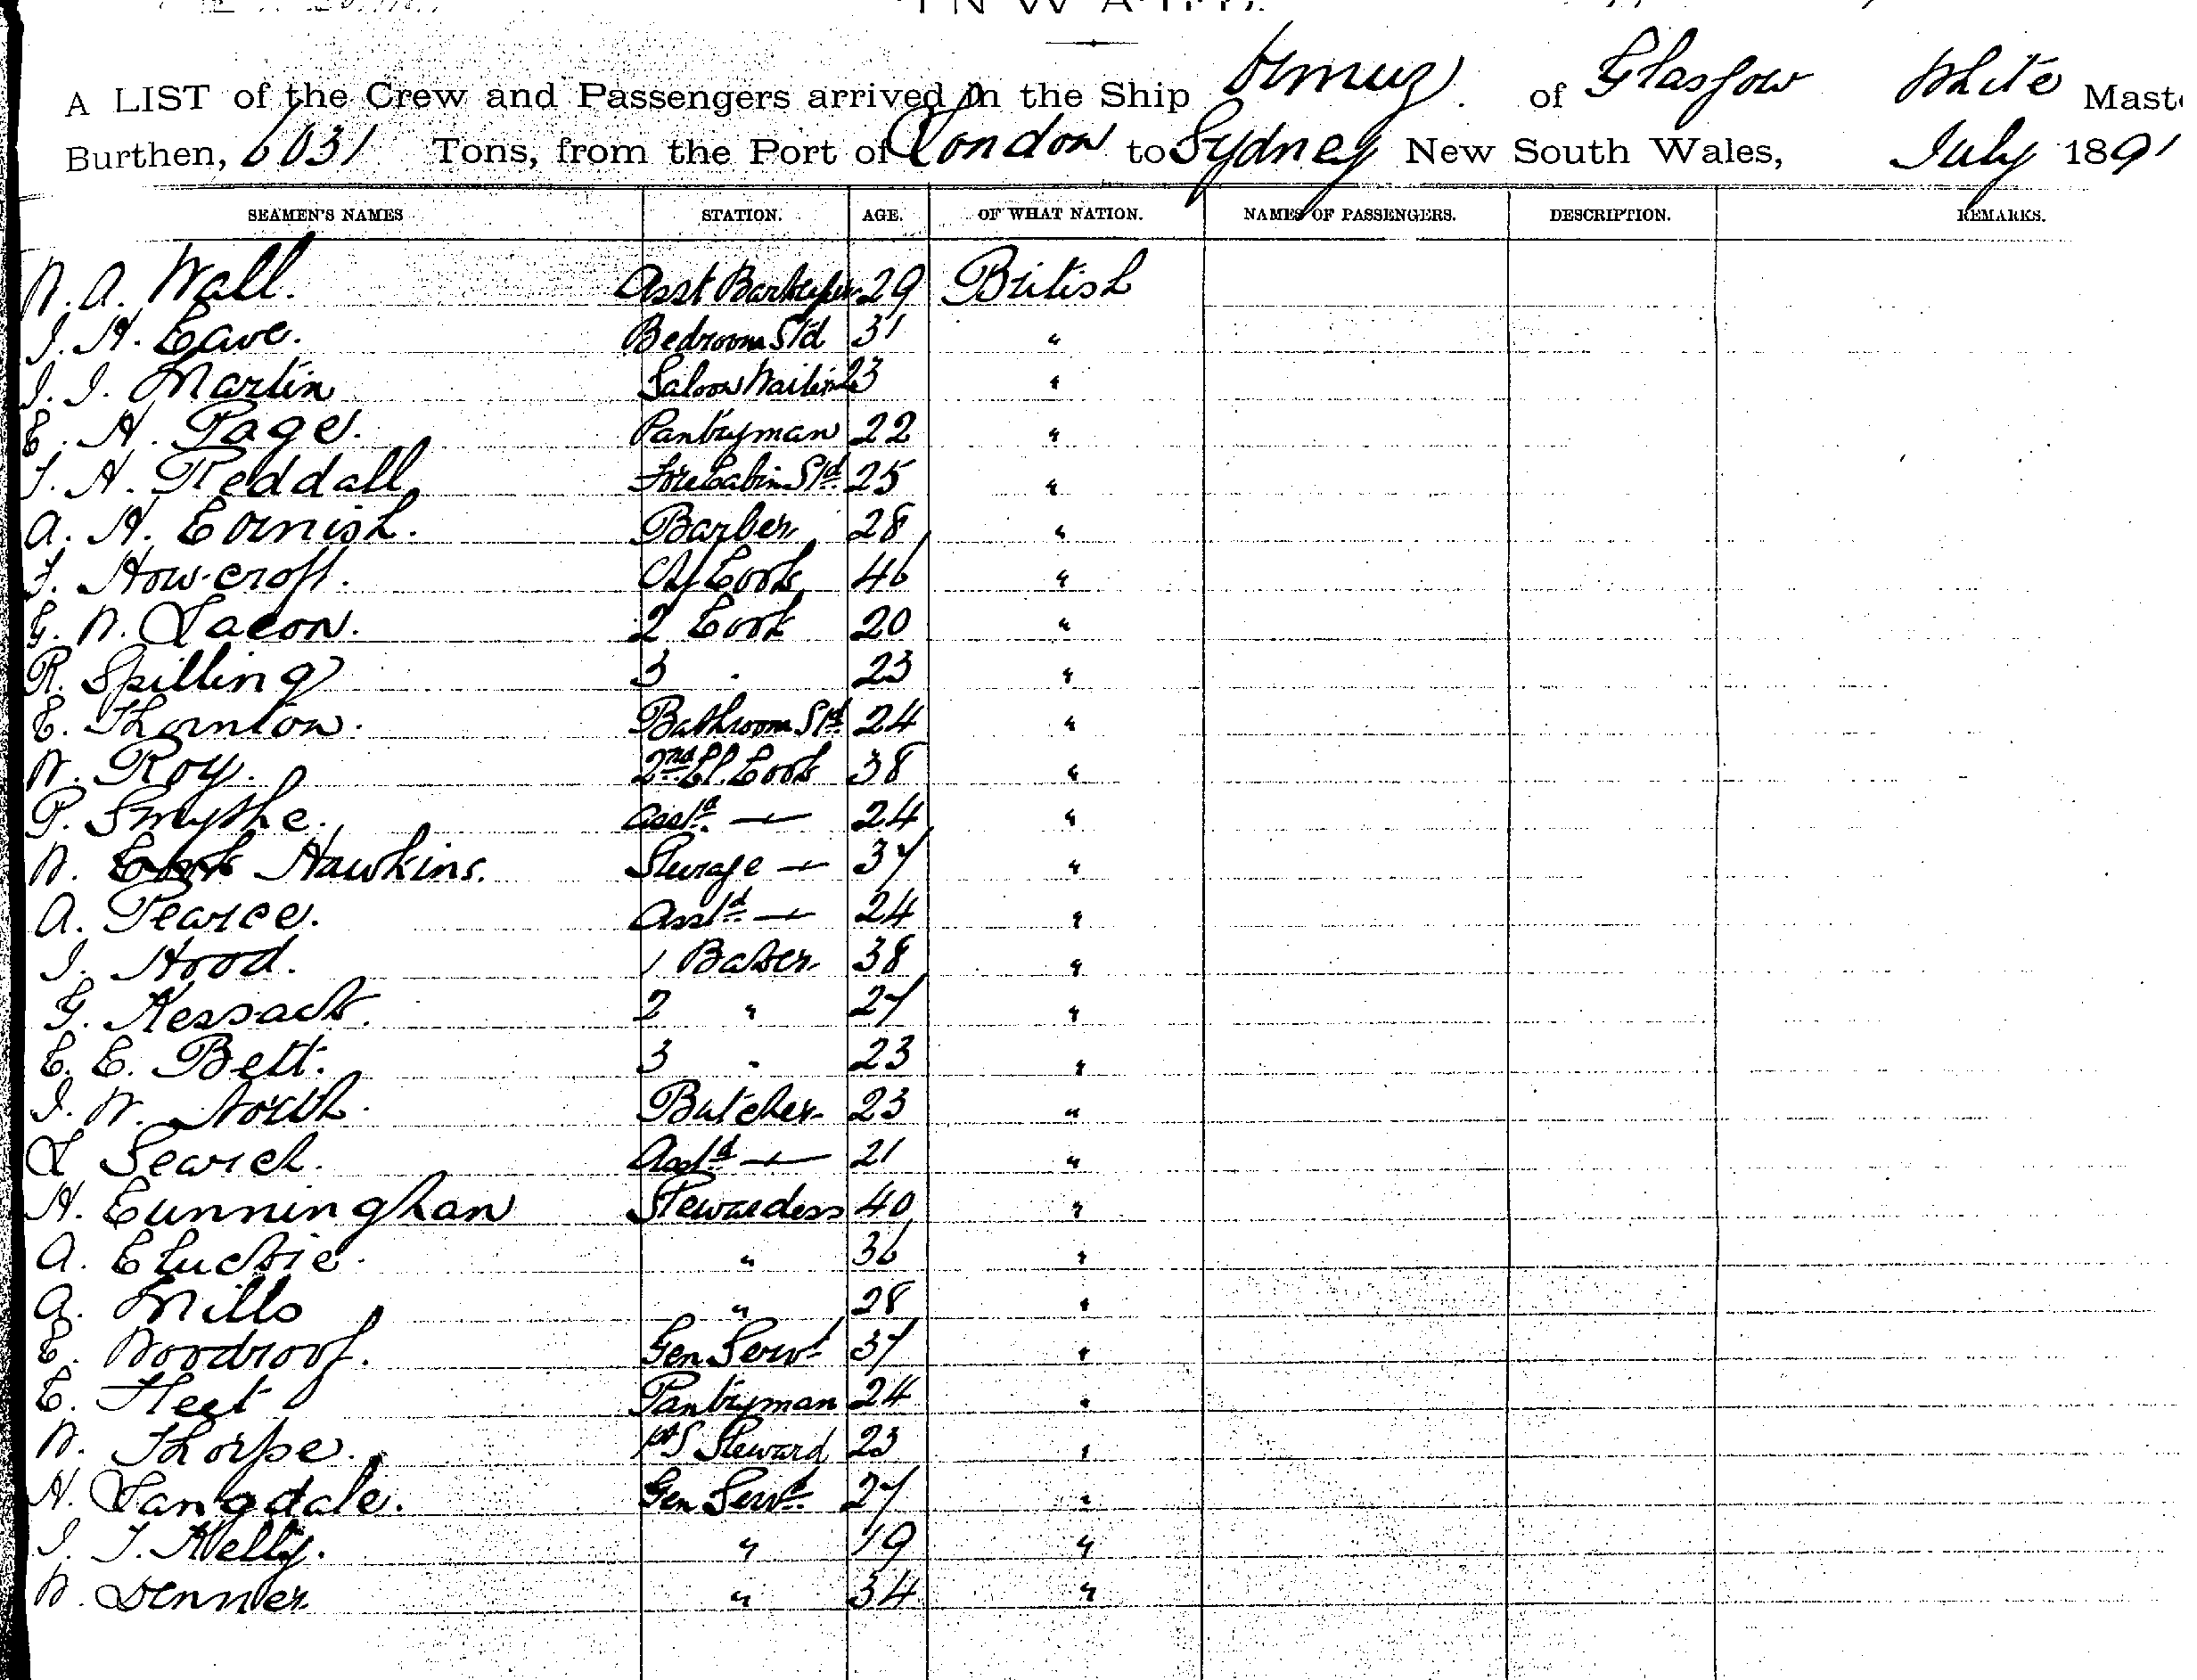 INWARD.
A LIST of the Crew and Passengers arrived in the Ship Ormuz of Glasgow White Maste
Burthen, 6031 Tons, from the Port of London to Sydney New South Wales, July 1891
SEAMEN'S NAMES STATION. AGE. OF WHAT NATION. NAMES OF PASSENGERS. DESCRIPTION. REMARKS.
W. A. Wall. Asst Barkeeper 29 British
J. H. Cave. Bedroom Std 31 "
J. J. Martin Saloon Waiter 23 "
C. H. Page. Pantryman 22 "
F. H. Reddall Fore Cabin Std 25 "
A. H. Cornish. Barber 28 "
F. Howcroft. Chf Cook 46 "
G. W. Lacon. 2 Cook 20 "
R. Spilling 3 " 23 "
C. Thornton. Bathroom Std 24 "
W. Roy. 2nd Cl. Cook 38 "
P. Smythe. Asst — 24 "
W. Hawkins. Steerage — 37 "
A. Pearce. Asst — 24 "
J. Hood. 1 Baker 38 "
G. Kessack. 2 " 27 "
C. C. Bett. 3 " 23 "
J. W. North. Butcher 23 "
L Search. Asst — 21 "
H. Cunninghan Stewardess 40 "
A. Cluckie. " 36 "
A. Mills " 28 "
C. Woodroof. Gen Servt 37 "
C. Fleet Pantryman 24 "
W. Thorpe. Steward 23 "
H. Langdale. Gen Servt. 27 "
J. J. Kelly. " 19 "
W. Denner " 34 "